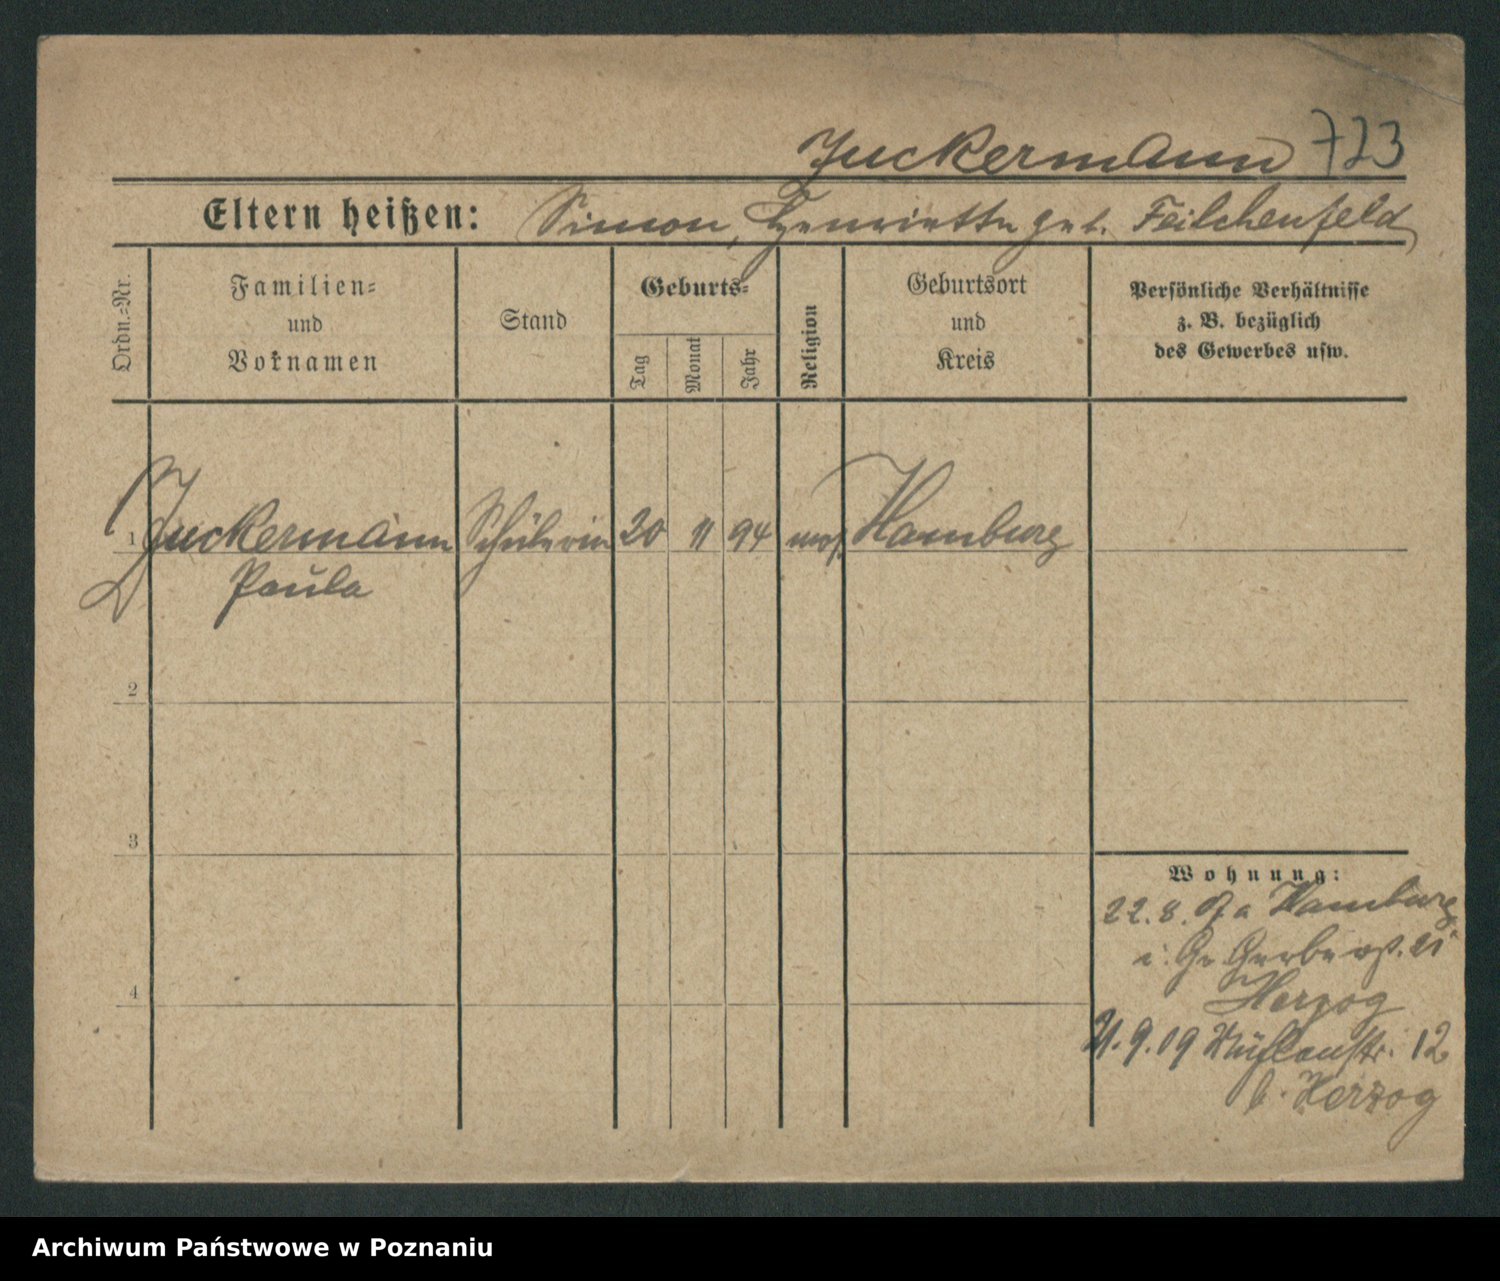 Zuckermann 723
Eltern heißen: Simon, Henriette geb. Feilchenfeld
Ordn.-Nr.
Familien-
und
Vornamen
Stand
Geburts-
Tag
Monat
Jahr
Religion
Geburtsort
und
Kreis
Persönliche Verhältnisse
z. B. bezüglich
des Gewerbes usw.
1 Zuckermann Schülerin 20 11 94 mos. Hamburg
Paula
2
3
4
Wohnung:
22.8. Hamburg
Gr. Gerberst.
Herzog
9.09 12
b. Herzog
Archiwum Państwowe w Poznaniu